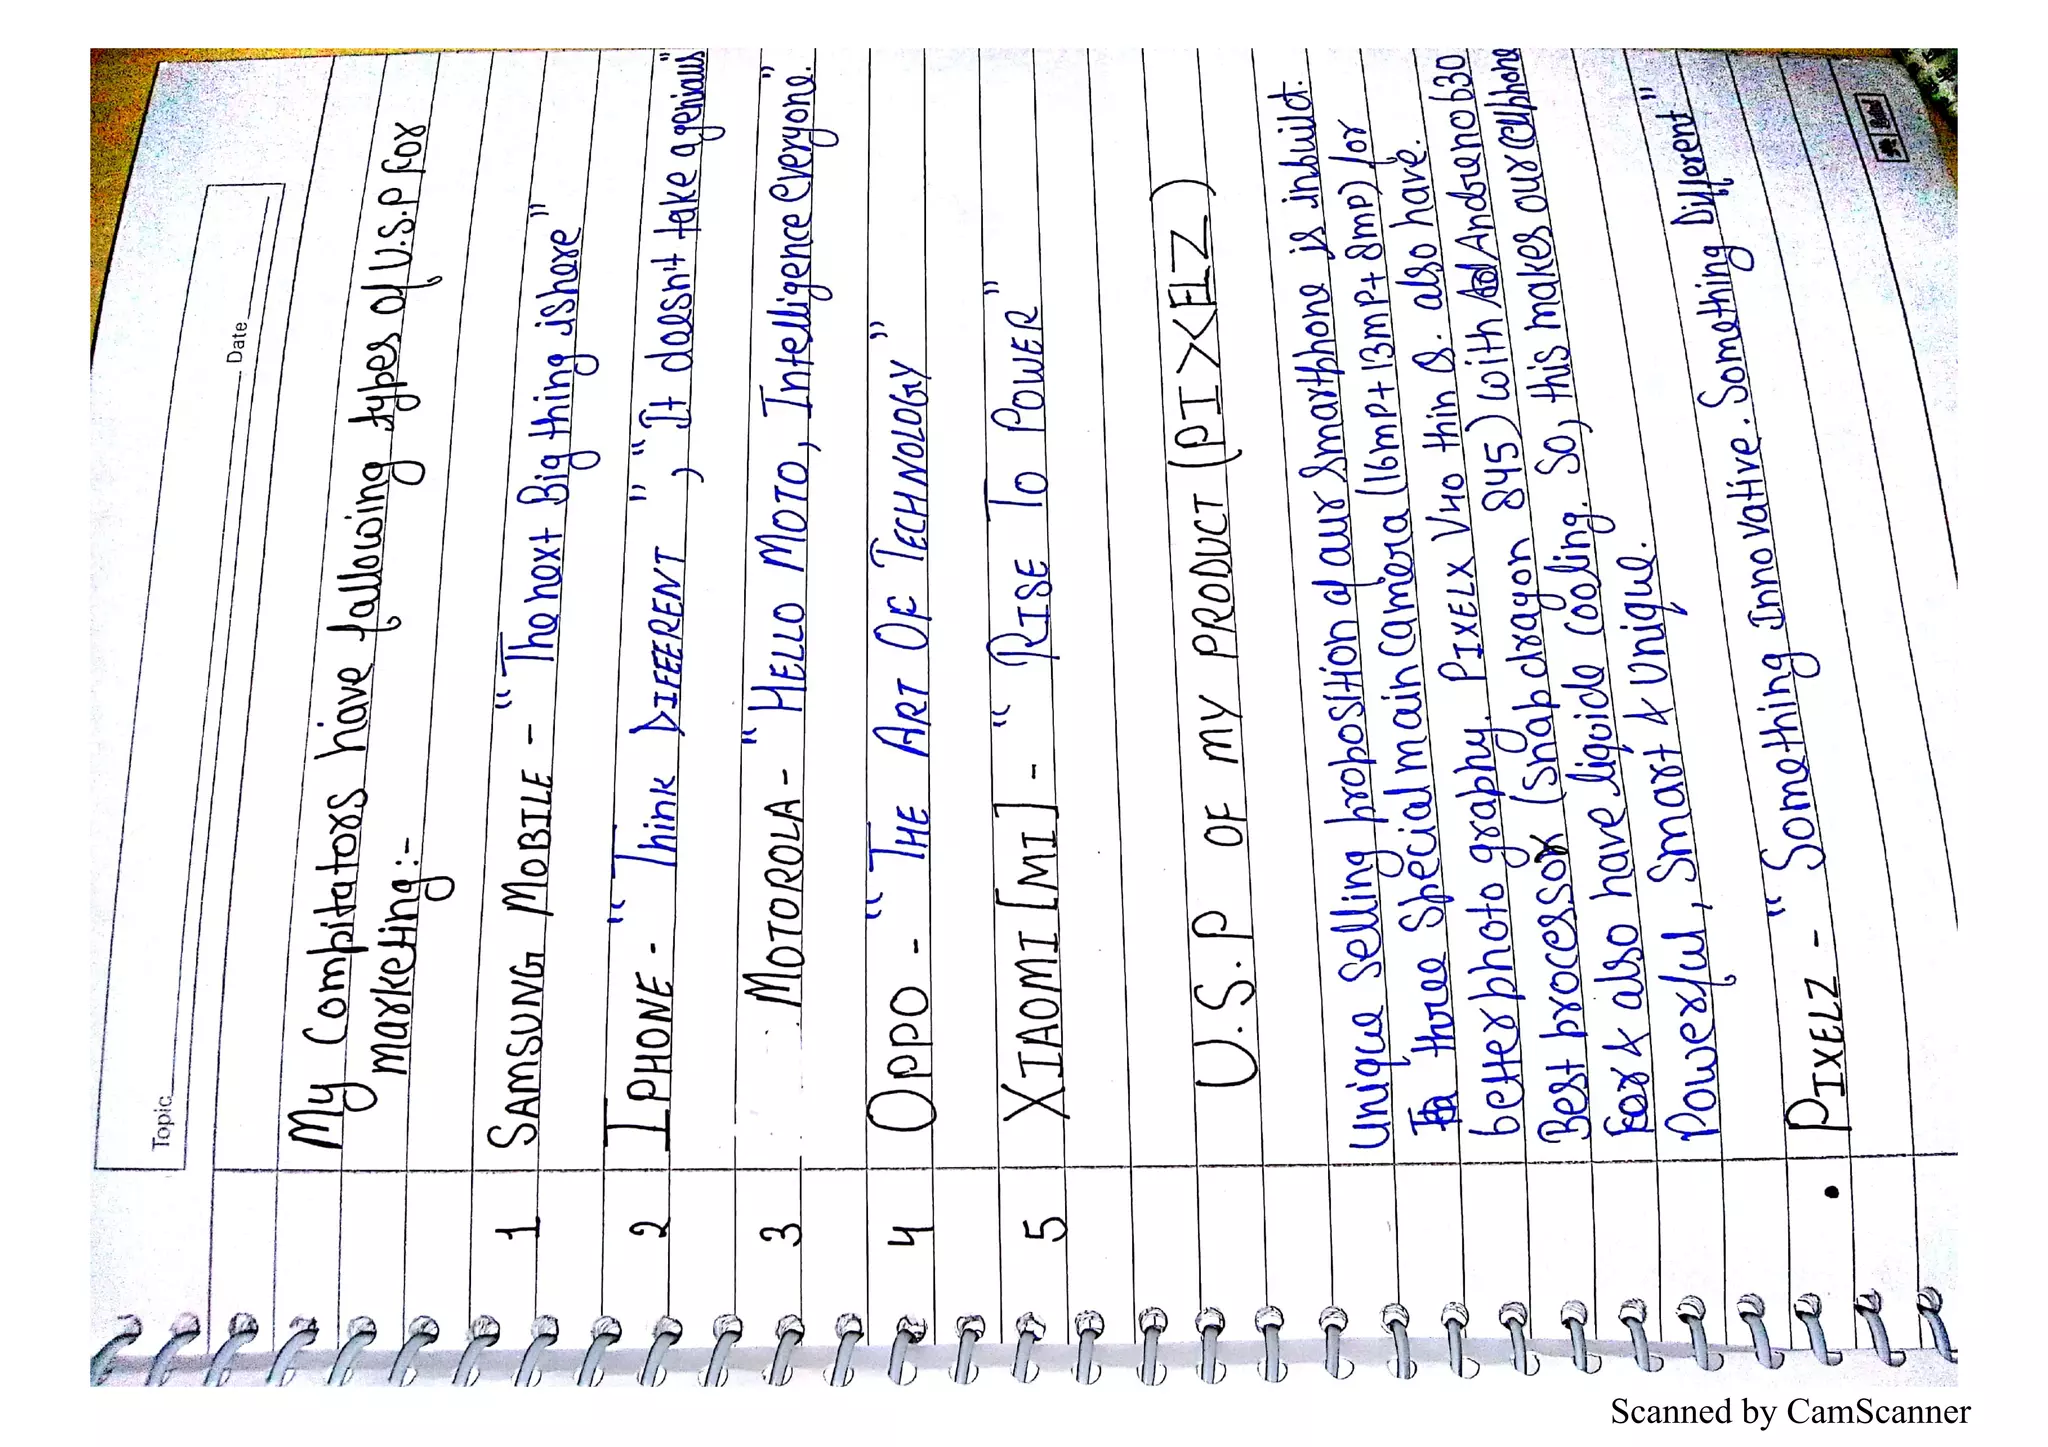 Topic
Date
My Compitators have following types of U.S.P for
marketing:-
1 SAMSUNG MOBILE - "The next Big thing is here"
2 IPHONE - "Think DIFFERENT", "It doesn't take a genious"
3 MOTOROLA - "HELLO MOTO, Intelligence everyone."
4 OPPO - "THE ART OF TECHNOLOGY"
5 XIAOMI [MI] - "RISE TO POWER"
U.S.P OF MY PRODUCT (PIXELZ)
Unique Selling proposition of our Smartphone is inbuilt.
three Special main camera (16mp+13mp+8mp) for
better photography. PIXELX V40 thin Q. also have.
Best processor (Snapdragon 845) with Andreno 630
& also have liquide cooling. So, this makes our cellphone
Powerful, Smart & Unique.
• PIXELZ - "Something Innovative. Something Different"
Scanned by CamScanner